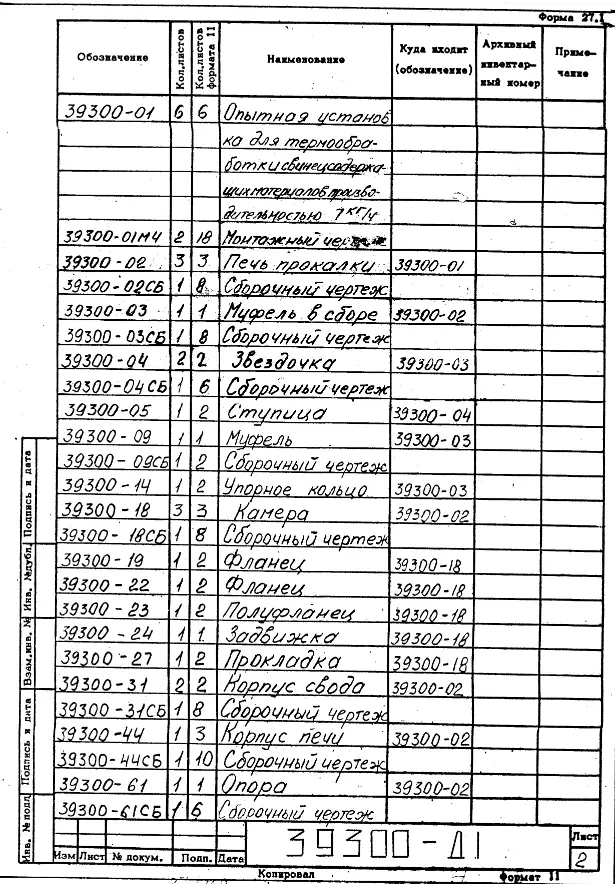 Форма 27.1
Обозначение Кол.листов Кол.листов формата 11 Наименование Куда входит (обозначение) Архивный инвентарный номер Примечание
39300-01 6 6 Опытная установ
ка для термообра-
ботки свинецсодержа-
щих материалов произво-
дительностью 7 кг/ч
39300-01МЧ 2 18 Монтажный чертеж
39300-02 3 3 Печь прокалки 39300-01
39300-02СБ 1 8 Сборочный чертеж
39300-03 1 1 Муфель в сборе 39300-02
39300-03СБ 1 8 Сборочный чертеж
39300-04 2 2 Звездочка 39300-03
39300-04СБ 1 6 Сборочный чертеж
39300-05 1 2 Ступица 39300-04
39300-09 1 1 Муфель 39300-03
39300-09СБ 1 2 Сборочный чертеж
39300-14 1 2 Упорное кольцо 39300-03
39300-18 3 3 Камера 39300-02
39300-18СБ 1 8 Сборочный чертеж
39300-19 1 2 Фланец 39300-18
39300-22 1 2 Фланец 39300-18
39300-23 1 2 Полуфланец 39300-18
39300-24 1 1 Задвижка 39300-18
39300-27 1 2 Прокладка 39300-18
39300-31 2 2 Корпус свода 39300-02
39300-31СБ 1 8 Сборочный чертеж
39300-44 1 3 Корпус печи 39300-02
39300-44СБ 1 10 Сборочный чертеж
39300-61 1 1 Опора 39300-02
39300-61СБ 1 6 Сборочный чертеж
Подпись и дата
Инв. №дубл.
Взам.инв. №
Подпись и дата
Инв. № подл
39300-Д1
Лист
2
Изм Лист № докум. Подп. Дата
Копировал Формат 11